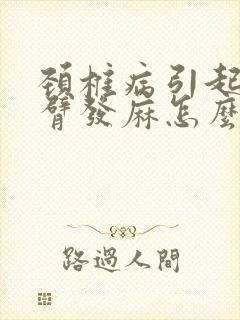 頚椎病引起
臂發麻怎麼
路過人間